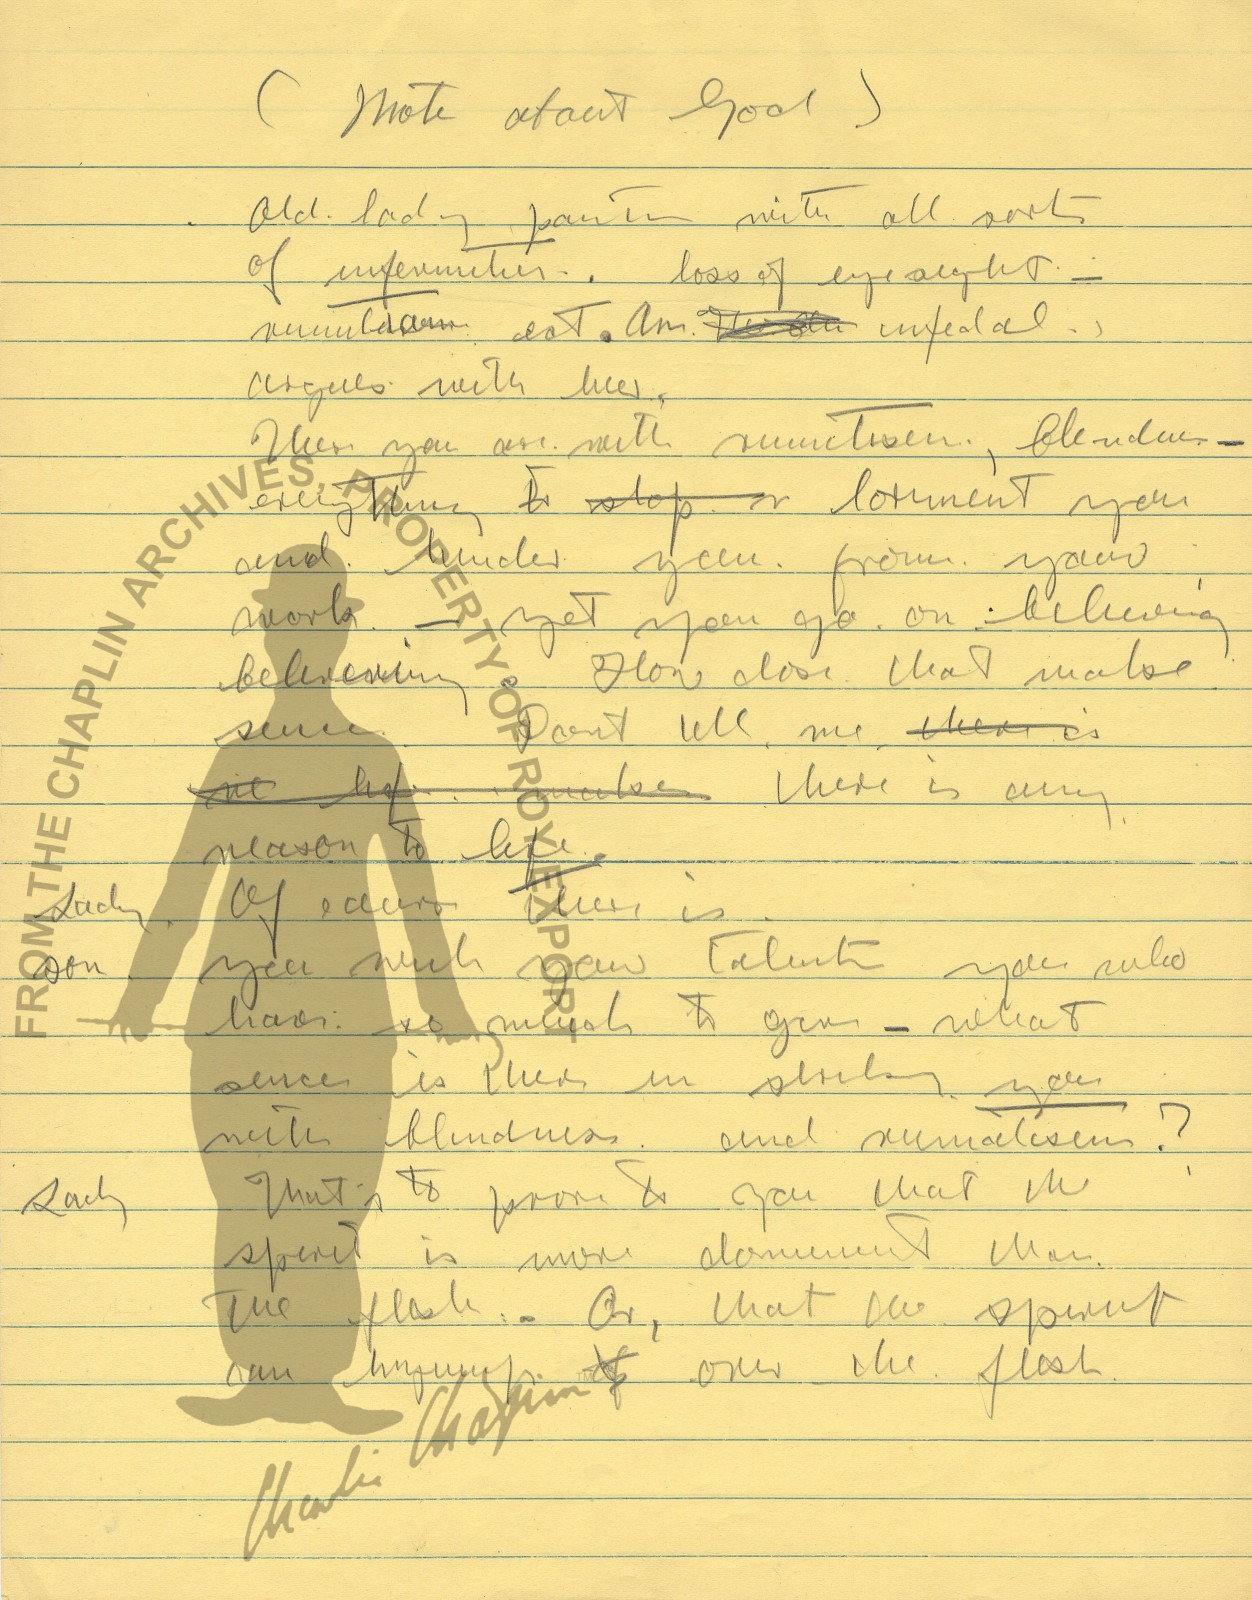 ( Note about God )
Old lady painter with all sorts
of infermities. loss of eyesight –
ect. An infedal
argues with her.
There you are with rumitisem, blendnes –
everything to stop or torment you
and hinder you from your
work – yet you go on believing
believing How dose that make
sence. Dont tell me there is
no life makes there is any
reason to life.
Lady. Of cours there is.
son. you with your talents you who
have so much to give – what
sence is there in you
with blindness and rumatisem?
Lady That's to prove to you that the
spirit is more domenent than
the flesh. Or, that the spirit
can over the flesh.
FROM THE CHAPLIN ARCHIVES, PROPERTY OF ROY EXPORT
Charlie Chaplin